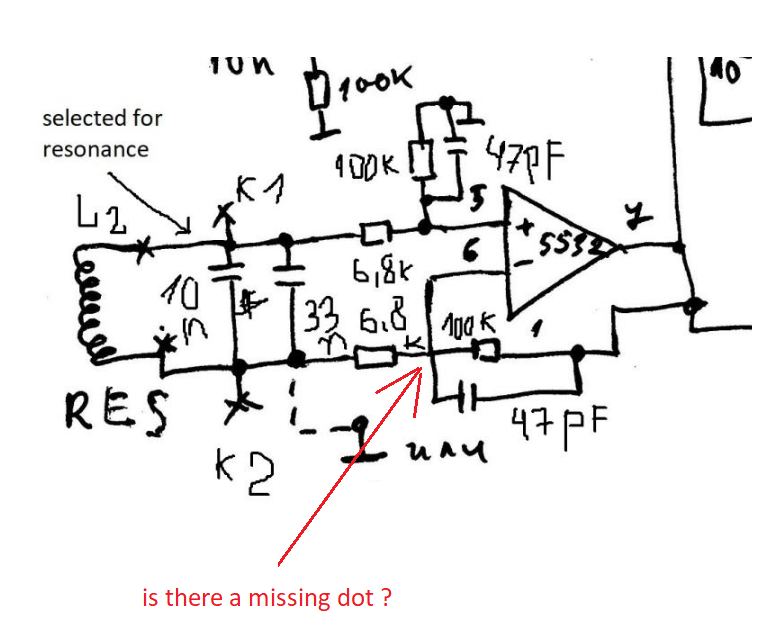 10n
100K
10
selected for
resonance
K1
100K
47pF
L2
5
+
5532
7
6
-
6,8k
10
n
33
n
6.8
K
100K
1
RES
47pF
K2
или
is there a missing dot ?